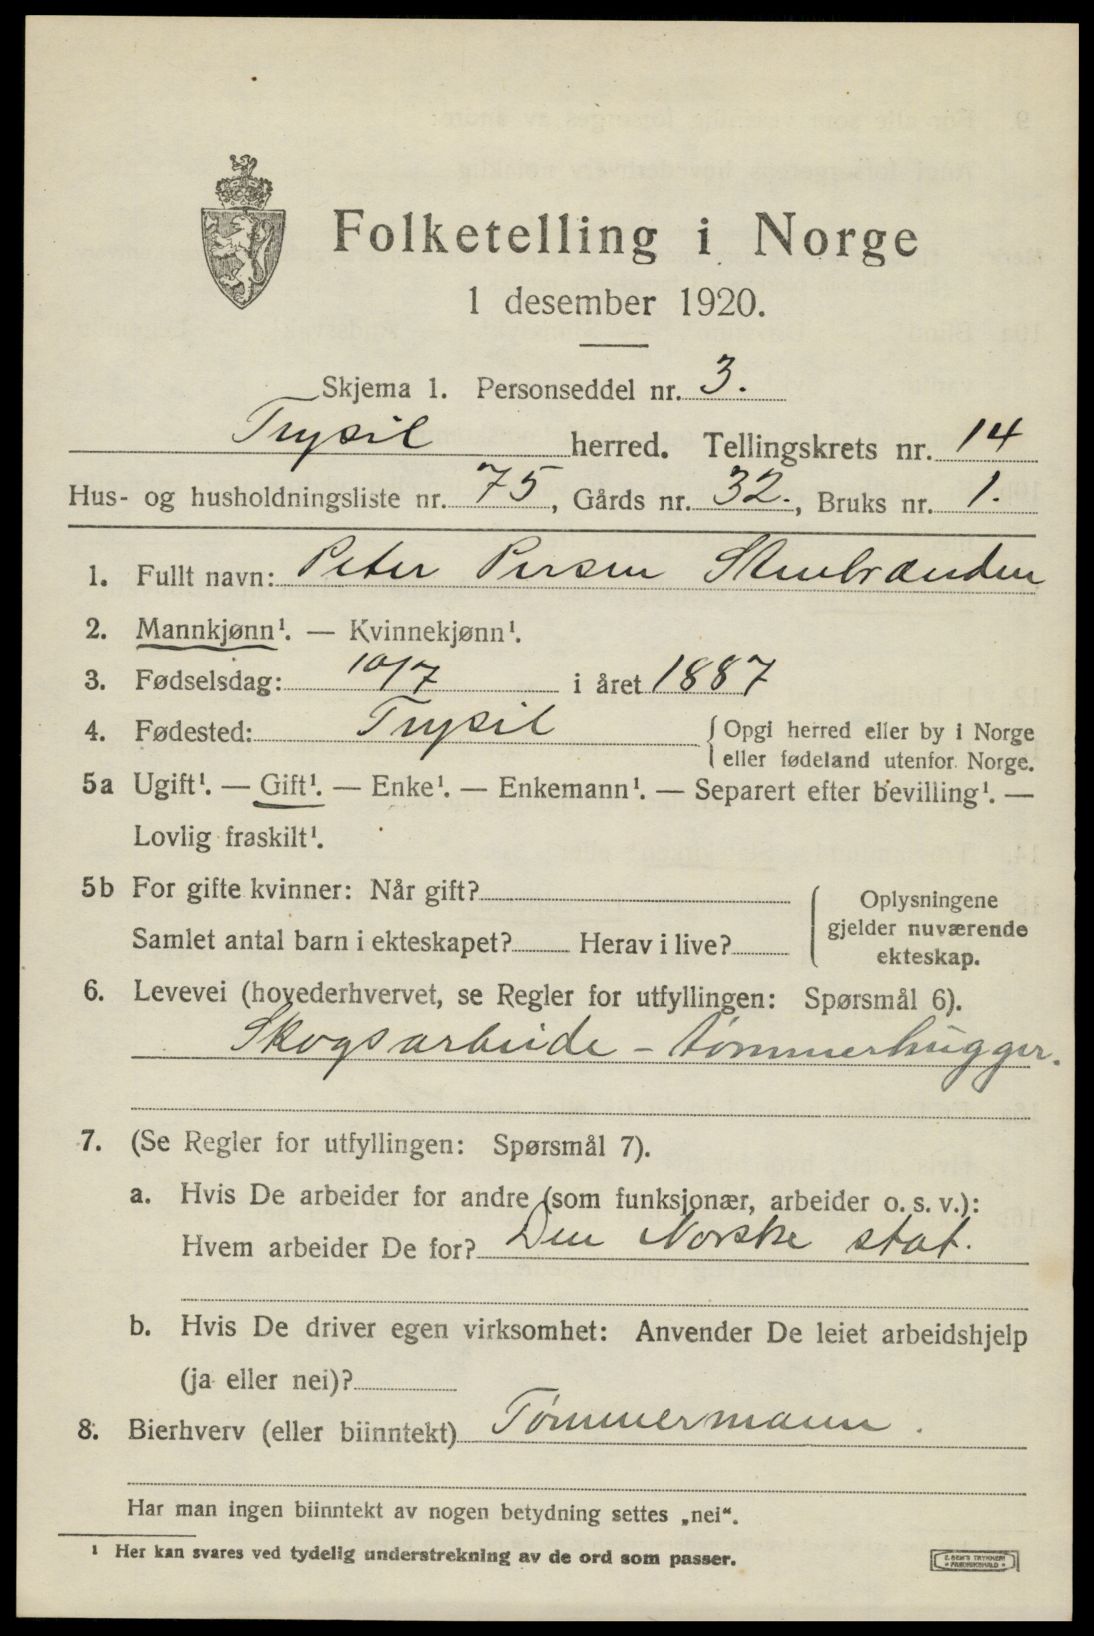 Folketelling i Norge
1 desember 1920.
Skjema 1. Personseddel nr. 3.
Trysil herred. Tellingskrets nr. 14
Hus- og husholdningsliste nr. 75, Gårds nr. 32., Bruks nr. 1.
1. Fullt navn: Peter Persen Stenbrænden
2. Mannkjønn¹. — Kvinnekjønn¹.
3. Fødselsdag: 10/7 i året 1887
4. Fødested: Trysil { Opgi herred eller by i Norge
eller fødeland utenfor Norge.
5a Ugift¹. — Gift¹. — Enke¹. — Enkemann¹. — Separert efter bevilling¹. —
Lovlig fraskilt¹.
5b For gifte kvinner: Når gift?
Samlet antal barn i ekteskapet? Herav i live?
Oplysningene
gjelder nuværende
ekteskap.
6. Levevei (hovederhvervet, se Regler for utfyllingen: Spørsmål 6).
Skogsarbeide - tømmerhugger.
7. (Se Regler for utfyllingen: Spørsmål 7).
a. Hvis De arbeider for andre (som funksjonær, arbeider o. s. v.):
Hvem arbeider De for? Den Norske stat.
b. Hvis De driver egen virksomhet: Anvender De leiet arbeidshjelp
(ja eller nei)?
8. Bierhverv (eller biinntekt) Tømmermann.
Har man ingen biinntekt av nogen betydning settes „nei“.
¹ Her kan svares ved tydelig understrekning av de ord som passer.